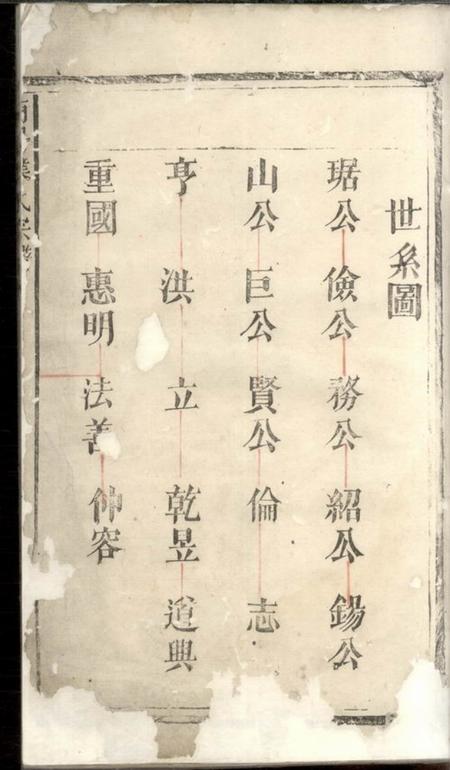 世系圖
琚公 儉公 務公 紹公 鍚公
山公 巨公 賢公 倫 志
亨 洪 立 乾昱 道興
重國 惠明 法善 仲容